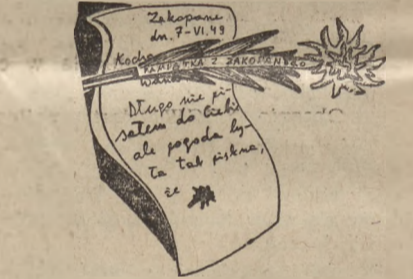 Zakopane
dn. 7-VI.49
Kocha
PAMIĄTKA Z ZAKOPANEGO
Długo nie pi-
sałem do Ciebie
ale pogoda by-
ła tak piękna,
że